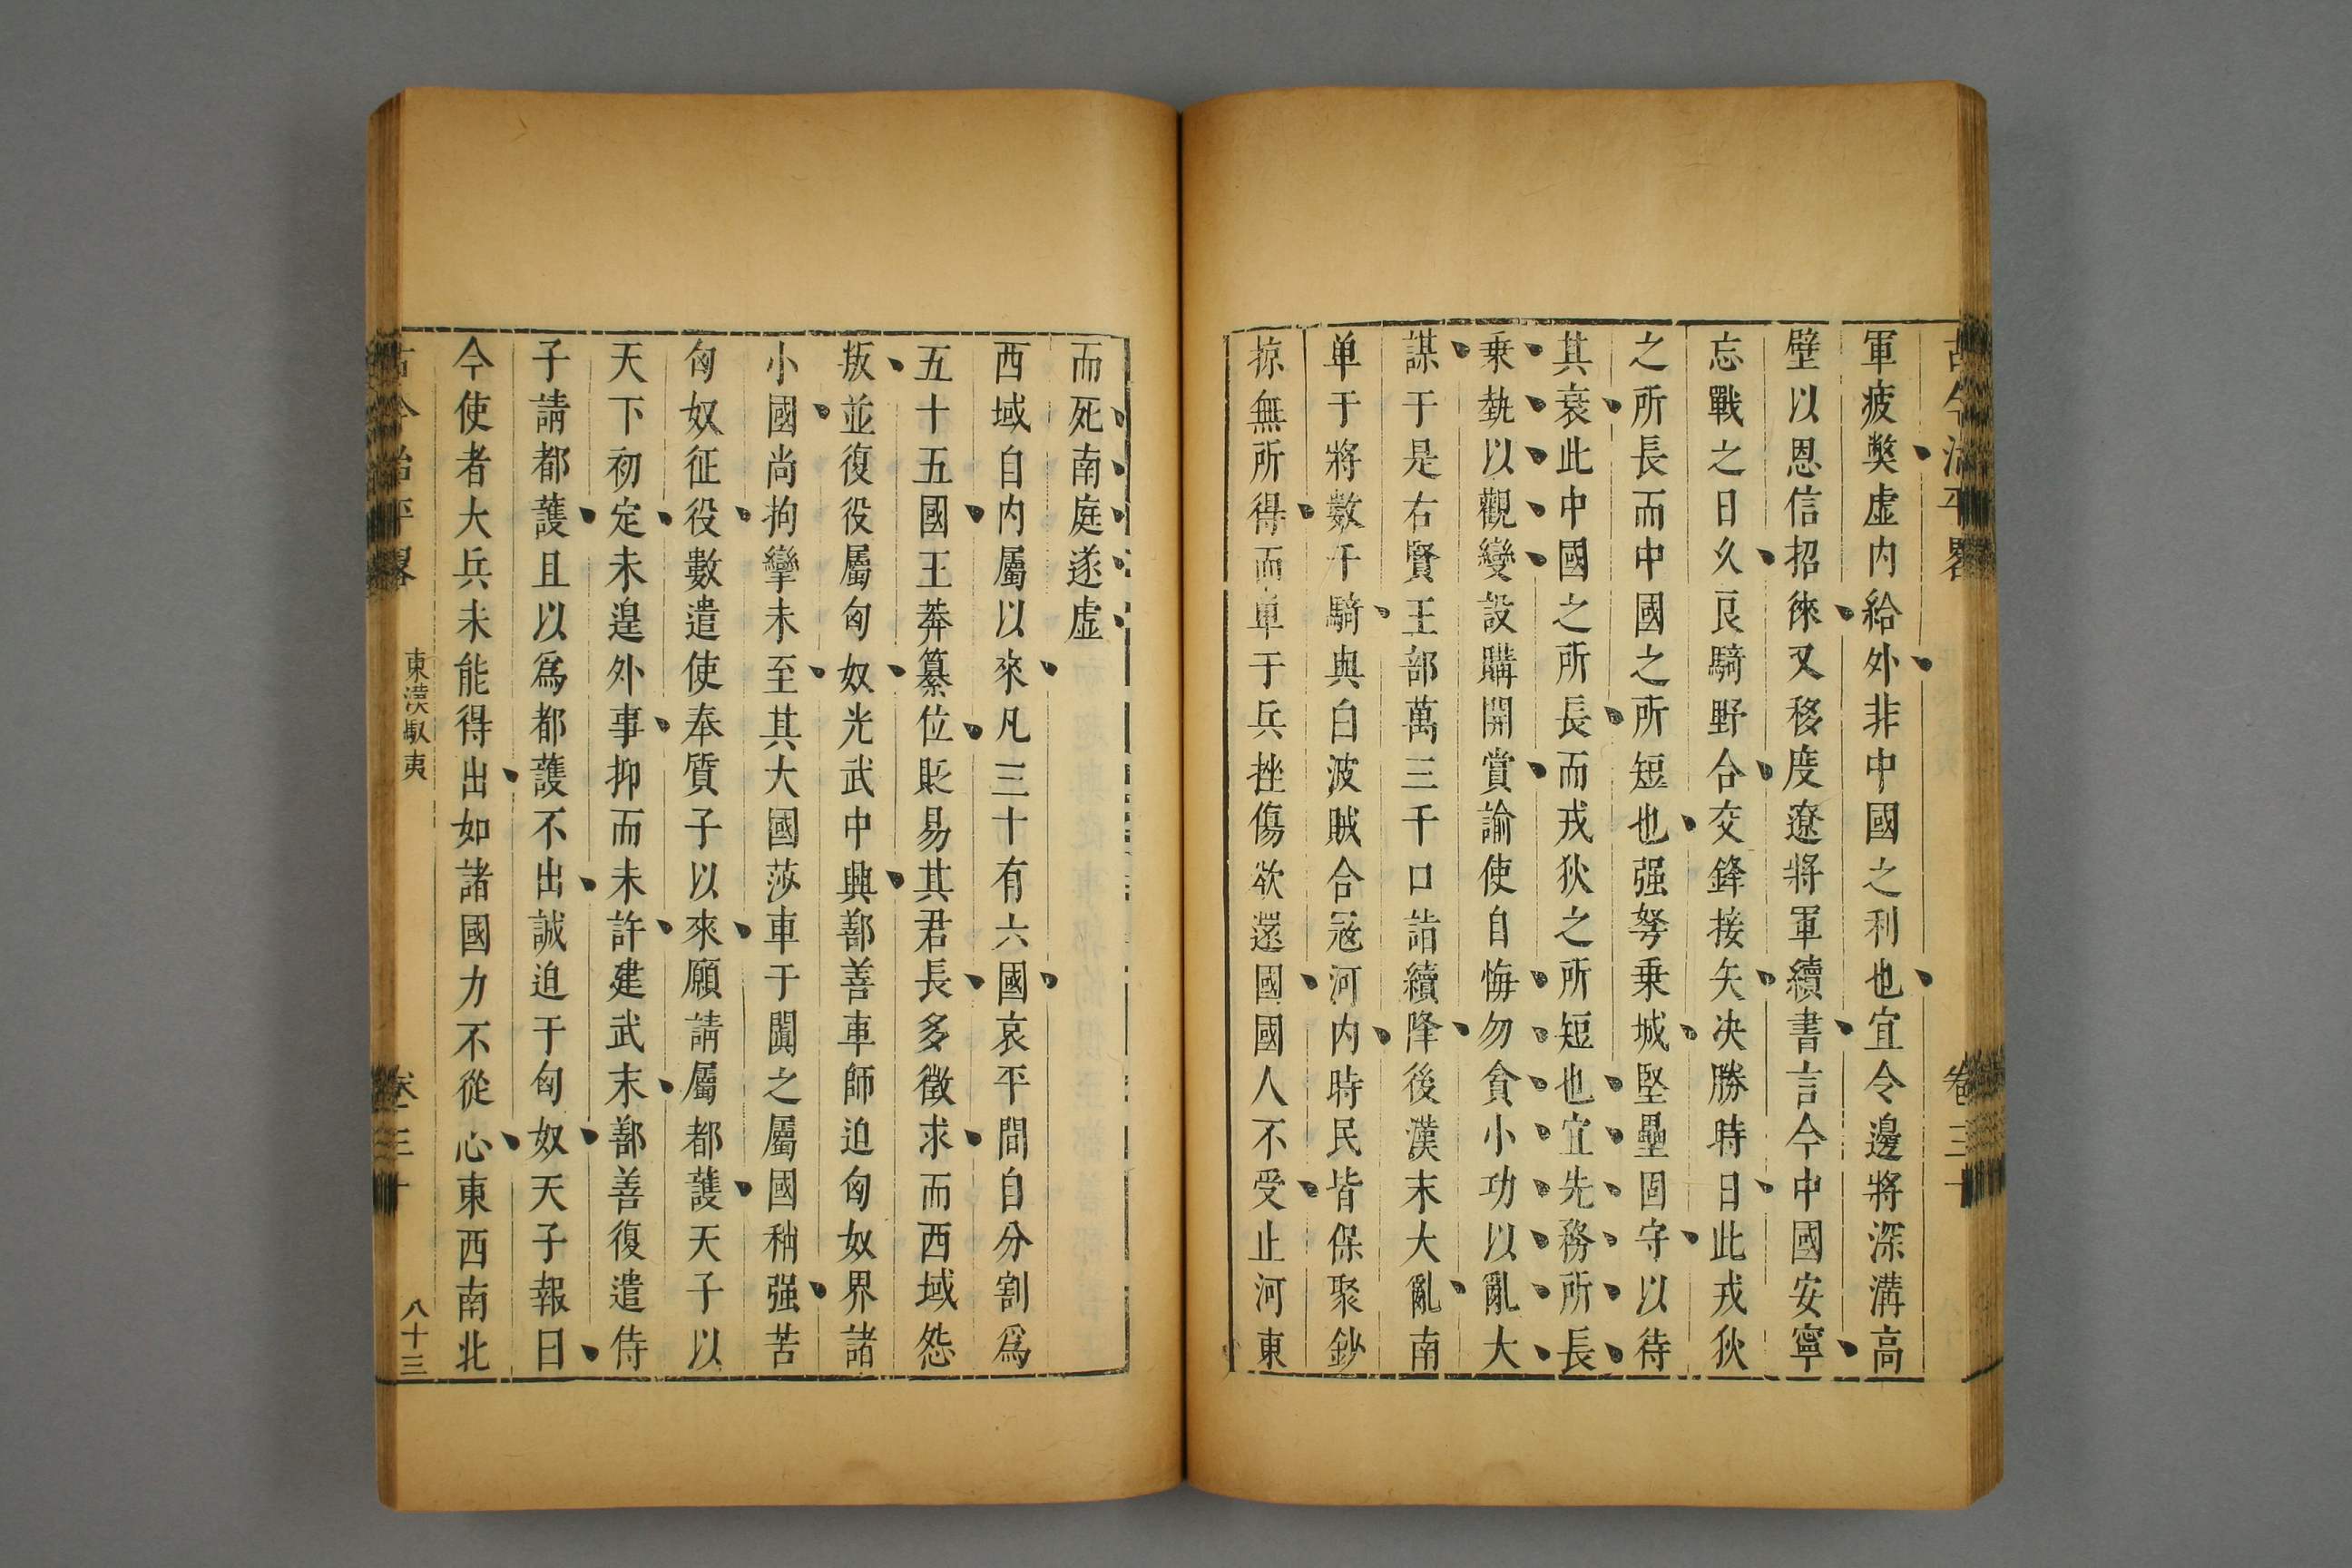 古今治平畧
卷三十
軍疲獘虛内給外非中國之利也宜令邊將深溝高
壁以恩信招徠又移度遼將軍續書言今中國安寧
忘戰之日久良騎野合交鋒接矢决勝時日此戎狄
之所長而中國之所短也强弩乗城堅壘固守以待
其衰此中國之所長而戎狄之所短也宜先務所長
乗埶以觀變設購開賞諭使自悔勿貪小功以亂大
謀于是右賢王部萬三千口詣續降後漢末大亂南
单于將數千騎與白波賊合冦河内時民皆保聚鈔
掠無所得而单于兵挫傷欲還國國人不受止河東
而死南庭遂虛
西域自内屬以來凡三十有六國哀平間自分割爲
五十五國王莽纂位貶易其君長多徵求而西域怨
叛並復役屬匈奴光武中興鄯善車師迫匈奴界諸
小國尚拘攣未至其大國莎車于闐之屬國稍强苦
匈奴征役數遣使奉質子以來願請屬都護天子以
天下初定未遑外事抑而未許建武末鄯善復遣侍
子請都護且以爲都護不出誠迫于匈奴天子報曰
今使者大兵未能得出如諸國力不從心東西南北
古今治平畧
東漢馭夷
卷三十
八十三